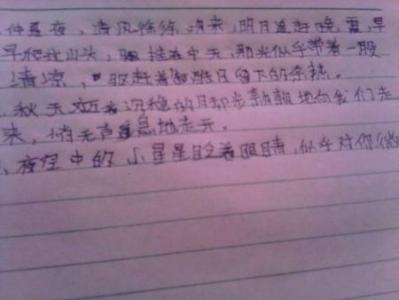 仲夏夜，清风徐徐吹来，明月追赶晚霞，早
早爬上山头，挂在中天，那光似乎带着一股
清凉，驱赶着留下的余热。
秋天迈着沉稳的步地向我们走
来，悄无声息地走开。
夜空中的小星星眨着眼睛，似乎对你微